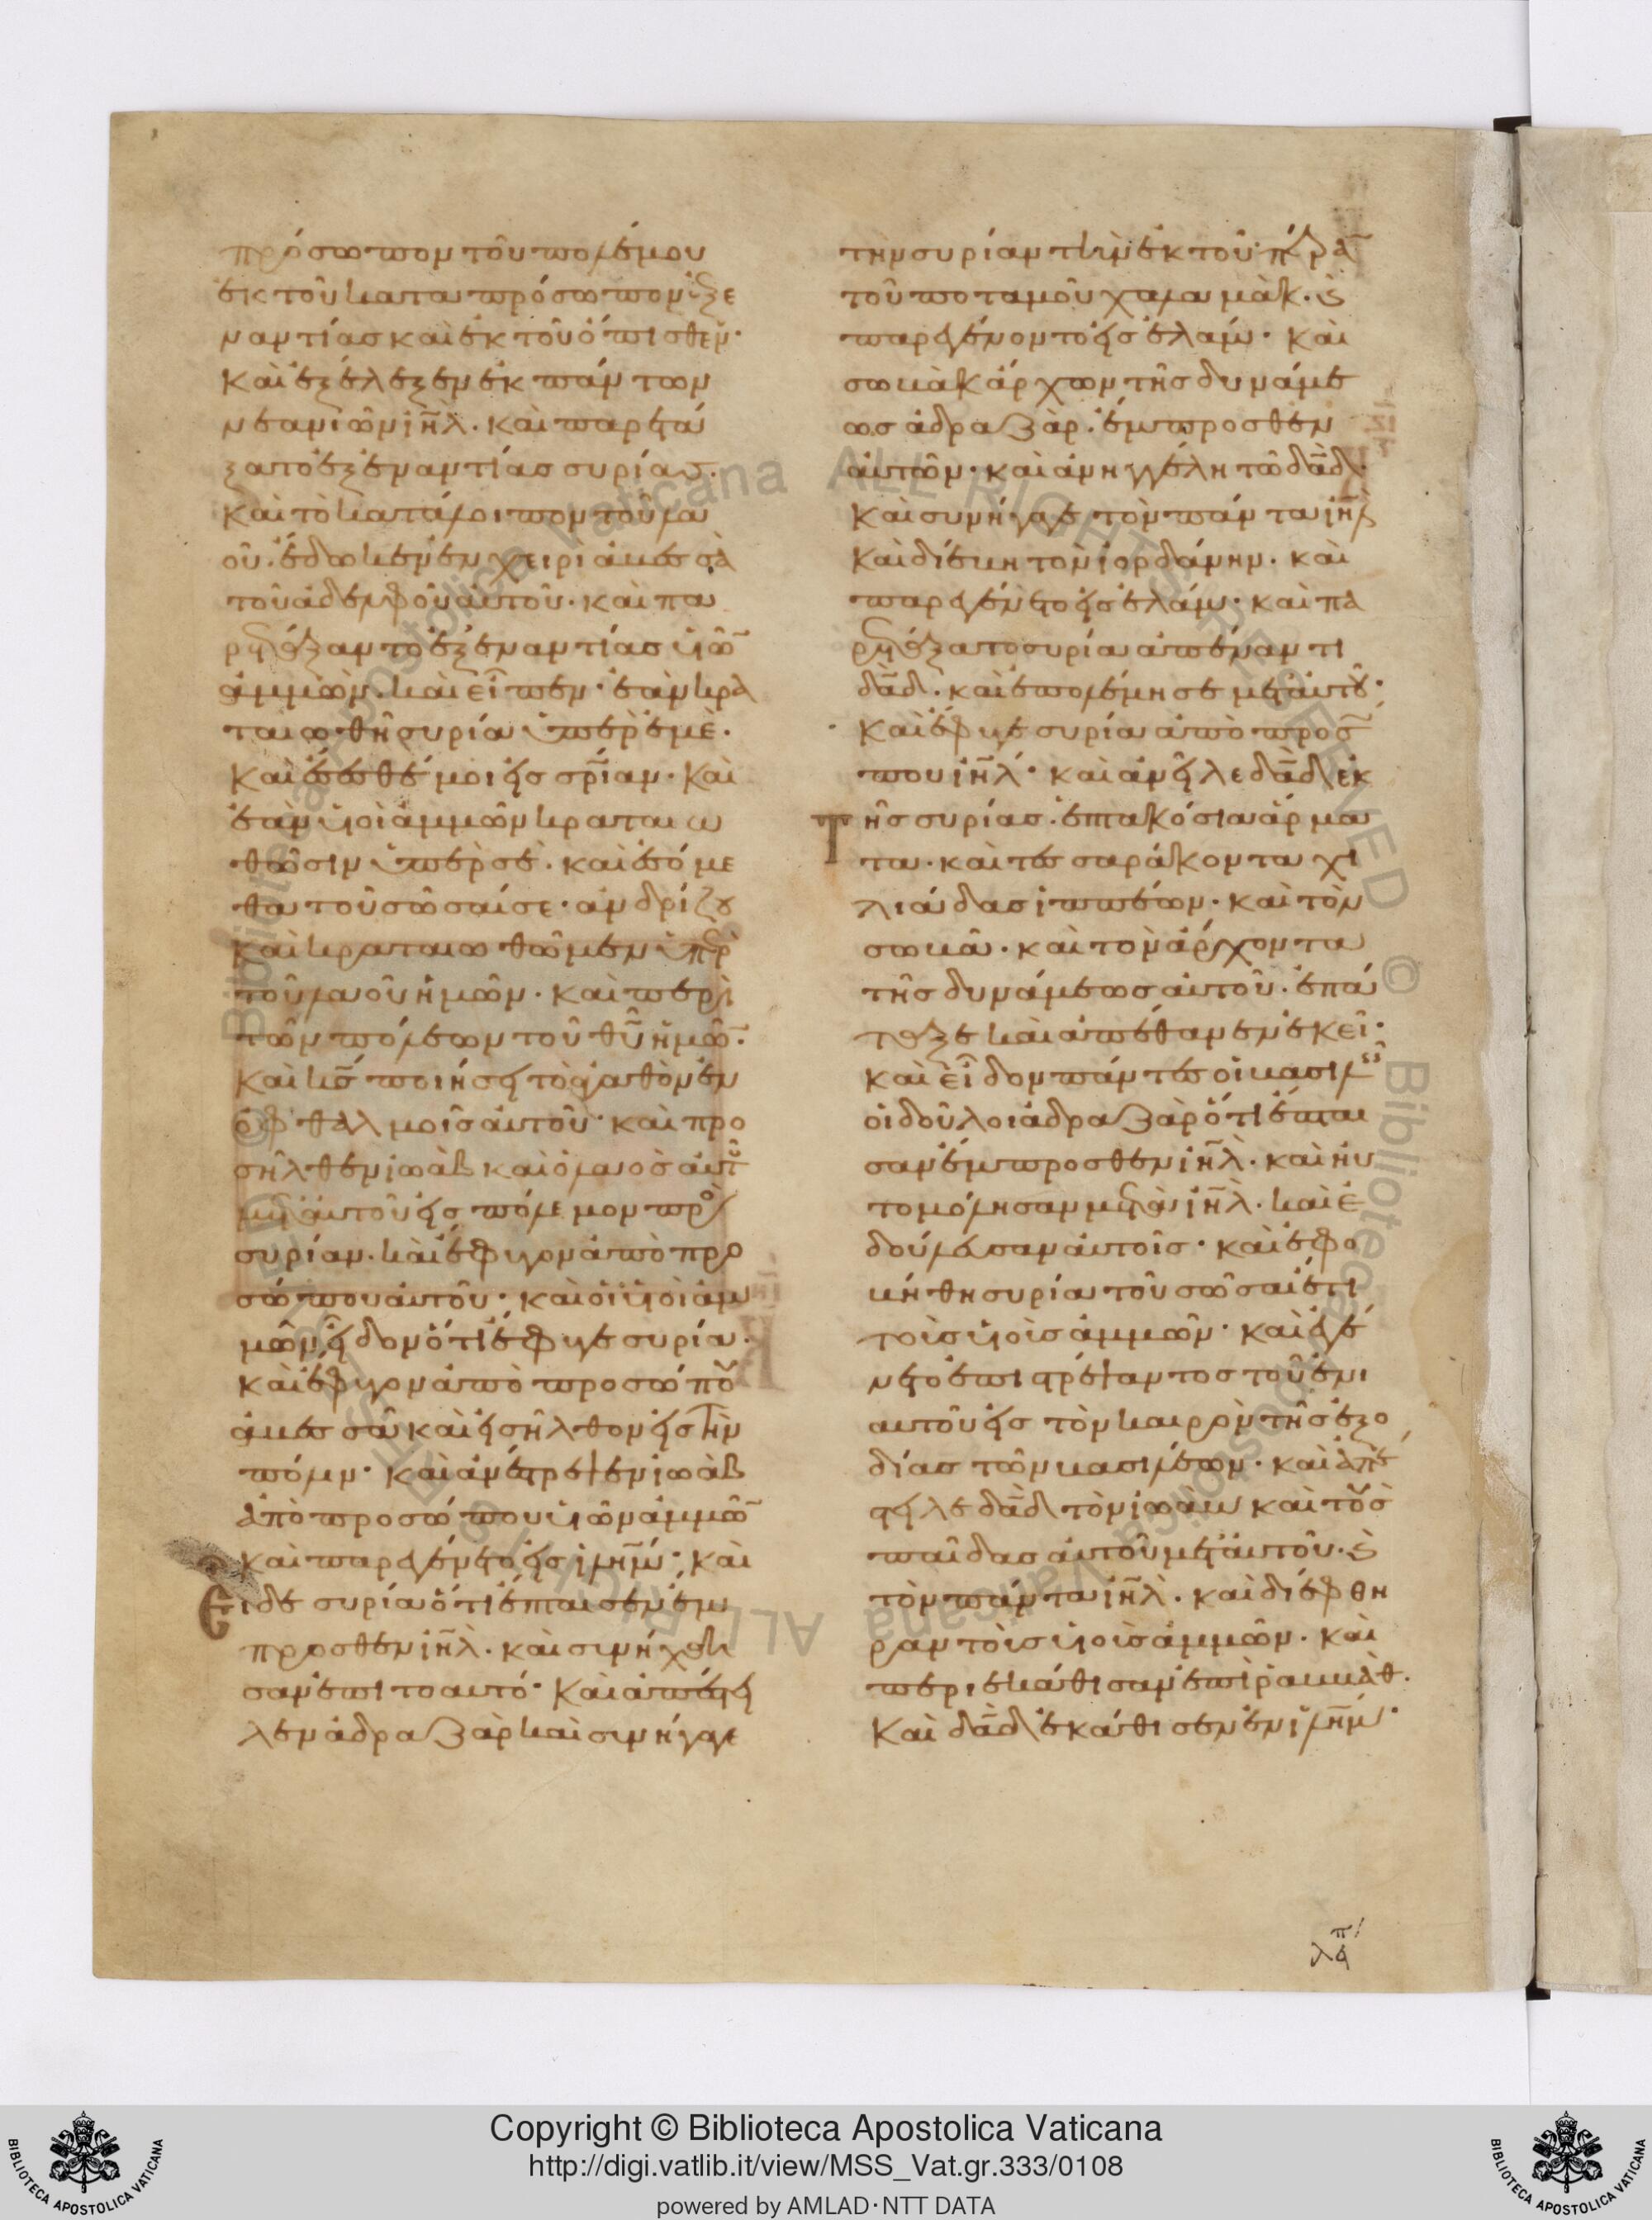 πρόσωπον τοῦ πολέμου
ἐκ τοῦ κατα πρόσωπον ἐξε
ναντίας καὶ ἐκ τοῦ ὄπισθεν·
καὶ ἐξέλεξεν ἐκ πάντων
νεανιῶν ιηλ. καὶ παρετά
ξατο ἐξεναντίας συρίας.
καὶ τὸ κατάλοιπον τοῦ λα
οῦ. ἔδωκεν ἐν χειρὶ ἀβεσσὰ
τοῦ ἀδελφοῦ αυτοῦ. καὶ πα
ρετάξαντο ἐξεναντίας υἱῶ
ἀμμών. καὶ εἶπεν· ἐὰν κρα
ταιωθῆ συρία ὑπὲρ ἐμὲ.
καὶ ἔσεσθέ μοι εἰς σρίαν. καὶ
ἐὰν υἱοὶ ἀμμῶν κραταιω
θῶσιν ὑπὲρ σὲ. καὶ ἐσόμε
θα τοῦ σῶσαί σε· ἀνδρίζου
καὶ κραταιωθῶμεν ὑπὲρ
τοῦ λαοῦ ἡμῶν. καὶ περὶ
τῶν πόλεων τοῦ θυ ἡμῶ.
καὶ κς ποιήσει τὸ ἀγαθὸν ἐν
ὀφθαλμοῖς αὐτοῦ· καὶ προ
σῆλθεν ἰωὰβ καὶ ὁ λαὸς αὐτοῦ
μετ αὐτοῦ εἰς πόλεμον πρὸς
συρίαν. καὶ ἔφυγον ἀπὸ προ
σώπου αὐτοῦ· καὶ οἱ υἱοὶ ἀμ
μῶν εἶδον ὅτι ἔφυγε συρία.
καὶ ἔφυγον ἀπὸ προσώπου
ἀβεσσὰ καὶ εἰσῆλθον εἰς τὴν
πόλιν· καὶ ἀνέστρεψεν ἰωὰβ
ἀπὸ προσώπου υἱῶν ἀμμῶ
καὶ παρεγένετο εἰς ιλημ· καὶ
Εἶδε συρία ὅτι ἔπταισεν ἔμ
προσθεν ιηλ. καὶ συνήχθη
σαν ἐπι το αυτό· καὶ ἀπέστει
λεν ἀδραζὰρ καὶ συνήγαγε
τὴν συρίαν τὴν ἐκ τοῦ πέρα
τοῦ ποταμοῦ χαλαμὰκ. καὶ
παρεγένοντο εἰς ἐλάμ· καὶ
σωβὰκ ἄρχων τῆς δυνάμε
ως ἀδραζὰρ. ἔμπροσθεν
αὐτῶν· καὶ ἀνηγγέλη τῶ δαδ.
καὶ συνήγαγε τὸν πάντα ιηλ
καὶ διέβη τὸν ἰορδάνην. καὶ
παρεγένετο εἰς ἐλάμ· καὶ πα
ρετάξατο συρία ἀπέναντι
δαδ. καὶ ἐπολέμησε μετ αὐτοῦ·
καὶ ἔφυγε συρία ἀπὸ προσ
που ιηλ· καὶ ἀνεῖλε δαδ ἐκ
Τῆς συρίας. ἑπτακόσια ἅρμα
τα. καὶ τεσσαράκοντα χι
λιάδας ἱππέων· καὶ τὸν
σωβὰ. καὶ τὸν ἄρχοντα
τῆς δυνάμεως αὐτοῦ. ἐπά
ταξε καὶ ἀπέθανεν ἐκεῖ·
καὶ εἶδον πάντες οἱ βασιλεῖς
οἱ δοῦλοι ἀδραζὰρ ὅτι ἔπται
σαν ἔμπροσθεν ιηλ. καὶ ηὐ
τομόλησαν μετὰ ιηλ. καὶ ἐ
δούλευσαν αὐτοῖς· καὶ ἐφο
βήθη συρία τοῦ σῶσαι ἔτι
τοὺς υἱοὺς ἀμμῶν· καὶ ἐγέ
νετο ἐπιστρέψαντος τοῦ ἐνι
αυτοῦ εἰς τὸν καιρὸν τῆς ἐξο
δίας τῶν βασιλέων· καὶ ἀπέ
στειλε δαδ τὸν ἰωὰβ καὶ τοὺς
παῖδας αὐτοῦ μετ αὐτοῦ. καὶ
τὸν πάντα ιηλ. καὶ διέφθη
ραν τοὺς υἱοὺς ἀμμῶν. καὶ
περιεκάθισαν ἐπὶ ῥαββὰθ.
καὶ δαδ ἐκάθισεν ἐν ιλημ·
Copyright © Biblioteca Apostolica Vaticana
http://digi.vatlib.it/view/MSS_Vat.gr.333/0108
powered by AMLAD·NTT DATA